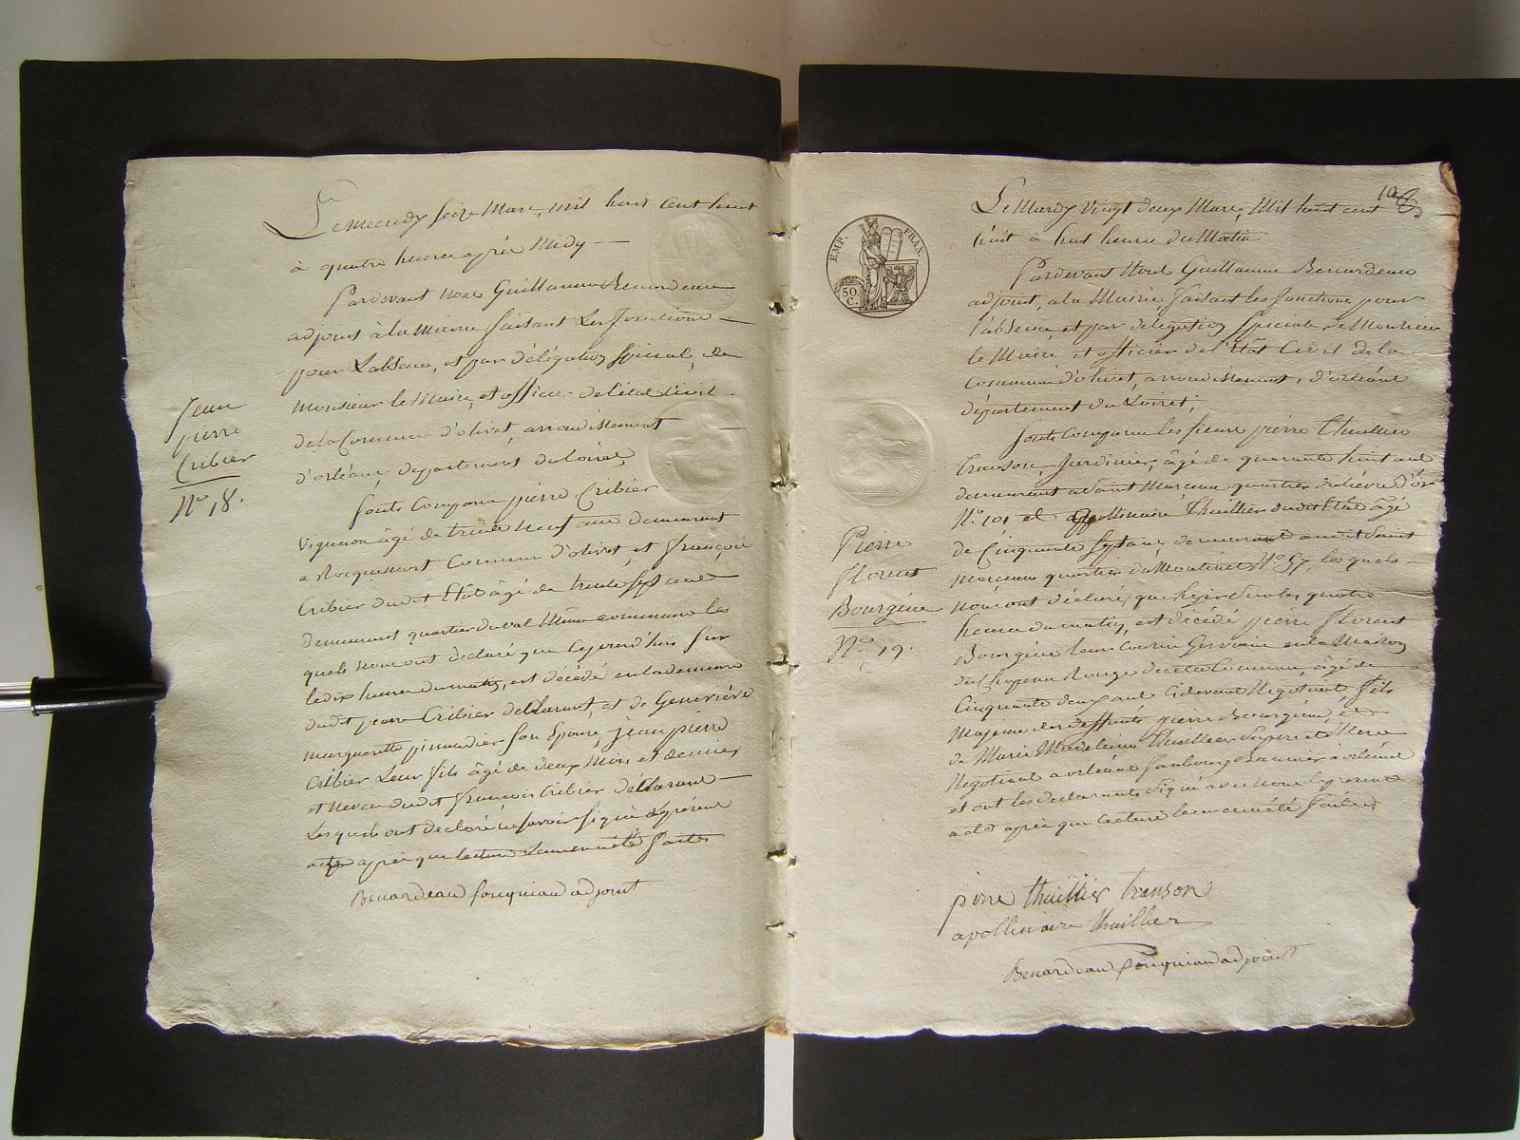 Le mercredy seize Mars, mil huit cent huit
à quatre heures après Midy
Pardevant nous Guillaume Benardeau
adjoint à la Mairie faisant Les fonctions
pour L'absence, et par délégation spécial, de
monsieur le Maire, et officier de l'état Civil
de la Commune d'olivet, arrondissement
d'orléans, département du loiret,
Sont Comparu pierre Cribier
Vigneron âgé de trente neuf ans demeurant
a Rocquemort Commune d'olivet, et françois
Cribier dudit Etat âgé de trente sept ans
demeurant quartier du val même commune les
quels nous ont declaré que Cejourd'hui sur
les dix heures du matin, est décédé en la demeure
dudit pierre Cribier déclarant, et de Geneviève
marguerite pinaudier son épouse, jean pierre
Cribier Leur fils âgé de deux Mois, et demi,
et neveu dudit françois Cribier déclarant
Lesquels ont declaré ne savoir signé Le présent
acte après que lecture Leur en a été faite
Benardeau fouquiau adjoint
Jean
pierre
Cribier
No. 18.
10
EMP. FRAN.
50
C.
Le Mardy Vingt deux Mars, Mil huit cent
huit à huit heures du Matin
Pardevant Nous Guillaume Benardeau
adjoint, à la Mairie faisant les fonctions pour
l'absence et par délégation spéciale de Monsieur
le Maire et officier de l'Etat Civil de la
Commune d'olivet, arrondissement, d'orléans
département du Loiret;
Sont Comparu les sieurs pierre Thuillier
Transon, Jardinier, âgé de quarante huit ans
demeurant a Saint Marceau quartier
No. 101 et appollinaire Thuillier dudit Etat âgé
de Cinquante sept ans, demeurant audit Saint
marceau quartier du Moulinet No. 57, lesquels
nous ont déclaré, que hyer sur les quatre
heures du matin, est décédé pierre florent
Bourgine leur Cousin Germain en la Maison
du Chapeau Rouge de cette Commune, âgé de
Cinquante deux ans Cidevant Négotiant, fils
Majeur des deffunts pierre Bourgine, et
de Marie Madeleine Thuillier Ses pere et Mere
Négotiant a orléans faubourg Bannier a orléans
et ont les déclarants, signé avec nous le présent
acte après que lecture leur en a été faite
pierre thuillier transon
apollinaire thuillier
Benardeau fouquiau adjoint
Pierre
florent
Bourgine
No. 19.